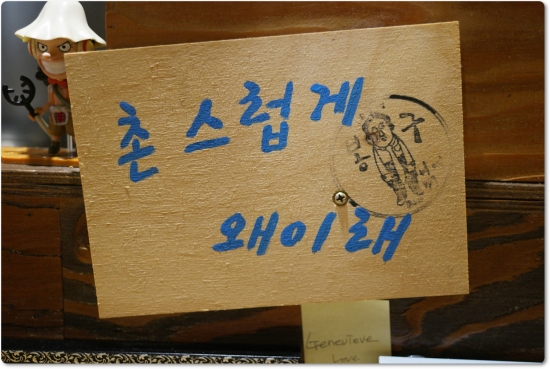 촌스럽게
왜이래
Genevieve
Love